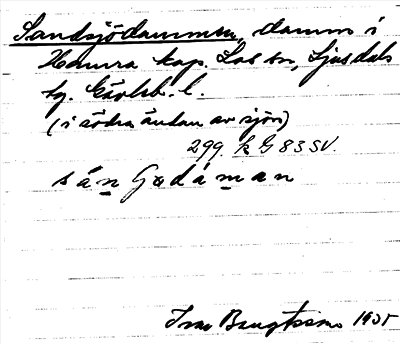 Sandsjödammen, damm i
Hamra kap. Los sn, Ljusdals
tg. Gävleb. l.
(i södra ändan av sjön)
299. k G 83 SV.
Ivar Bengtsson 1935